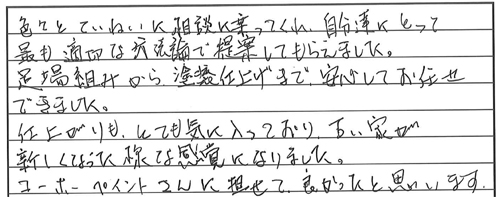 色々とていねいに相談に乗ってくれ、自分達にとって
最も適切な方法論で提案してもらえました。
足場組みから塗装仕上げまで、安心してお任せ
できました。
仕上がりも、とても気に入っており、古い家が
新しくなった様な感覚になりました。
ユーホーペイントさんに任せて、良かったと思います。